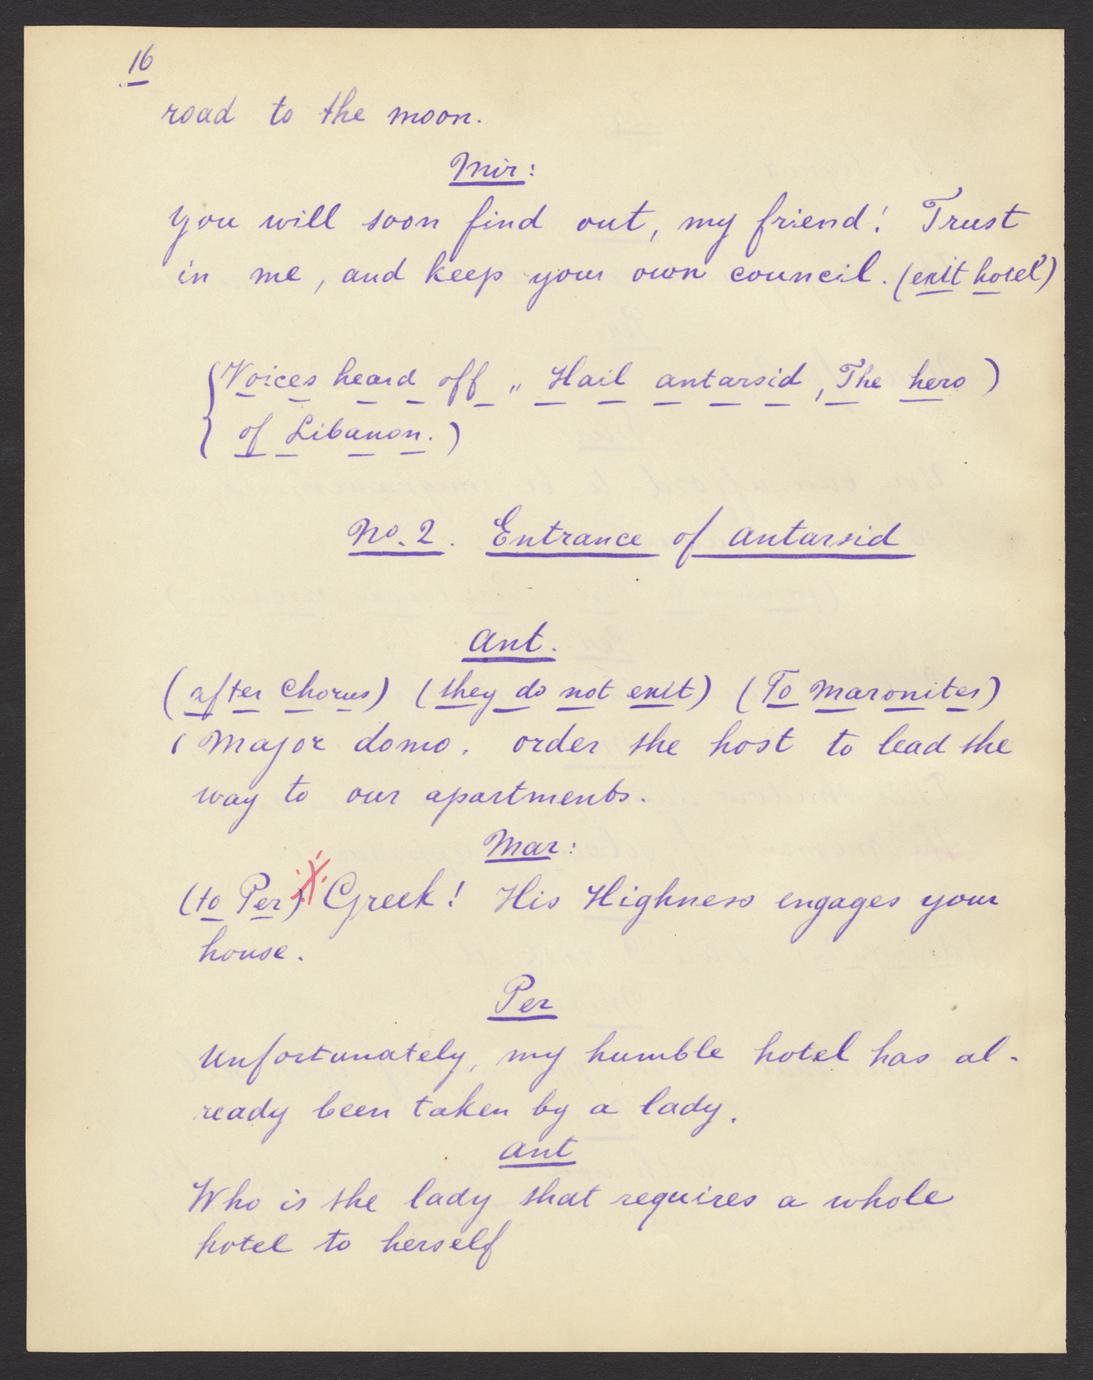 16
road to the moon.
Mir:
You will soon find out, my friend! Trust
in me, and keep your own council. (exit hotel)
(Voices heard off „ Hail antarsid, The hero )
of Libanon. )
No. 2. Entrance of antarsid
Ant.
(after Chorus) (they do not exit) (To Maronites)
( Major domo. order the host to lead the
way to our apartments.
Mar:
(to Per) Greek! His Highness engages your
house.
Per
Unfortunately, my humble hotel has al-
ready been taken by a lady.
Ant
Who is the lady that requires a whole
hotel to herself